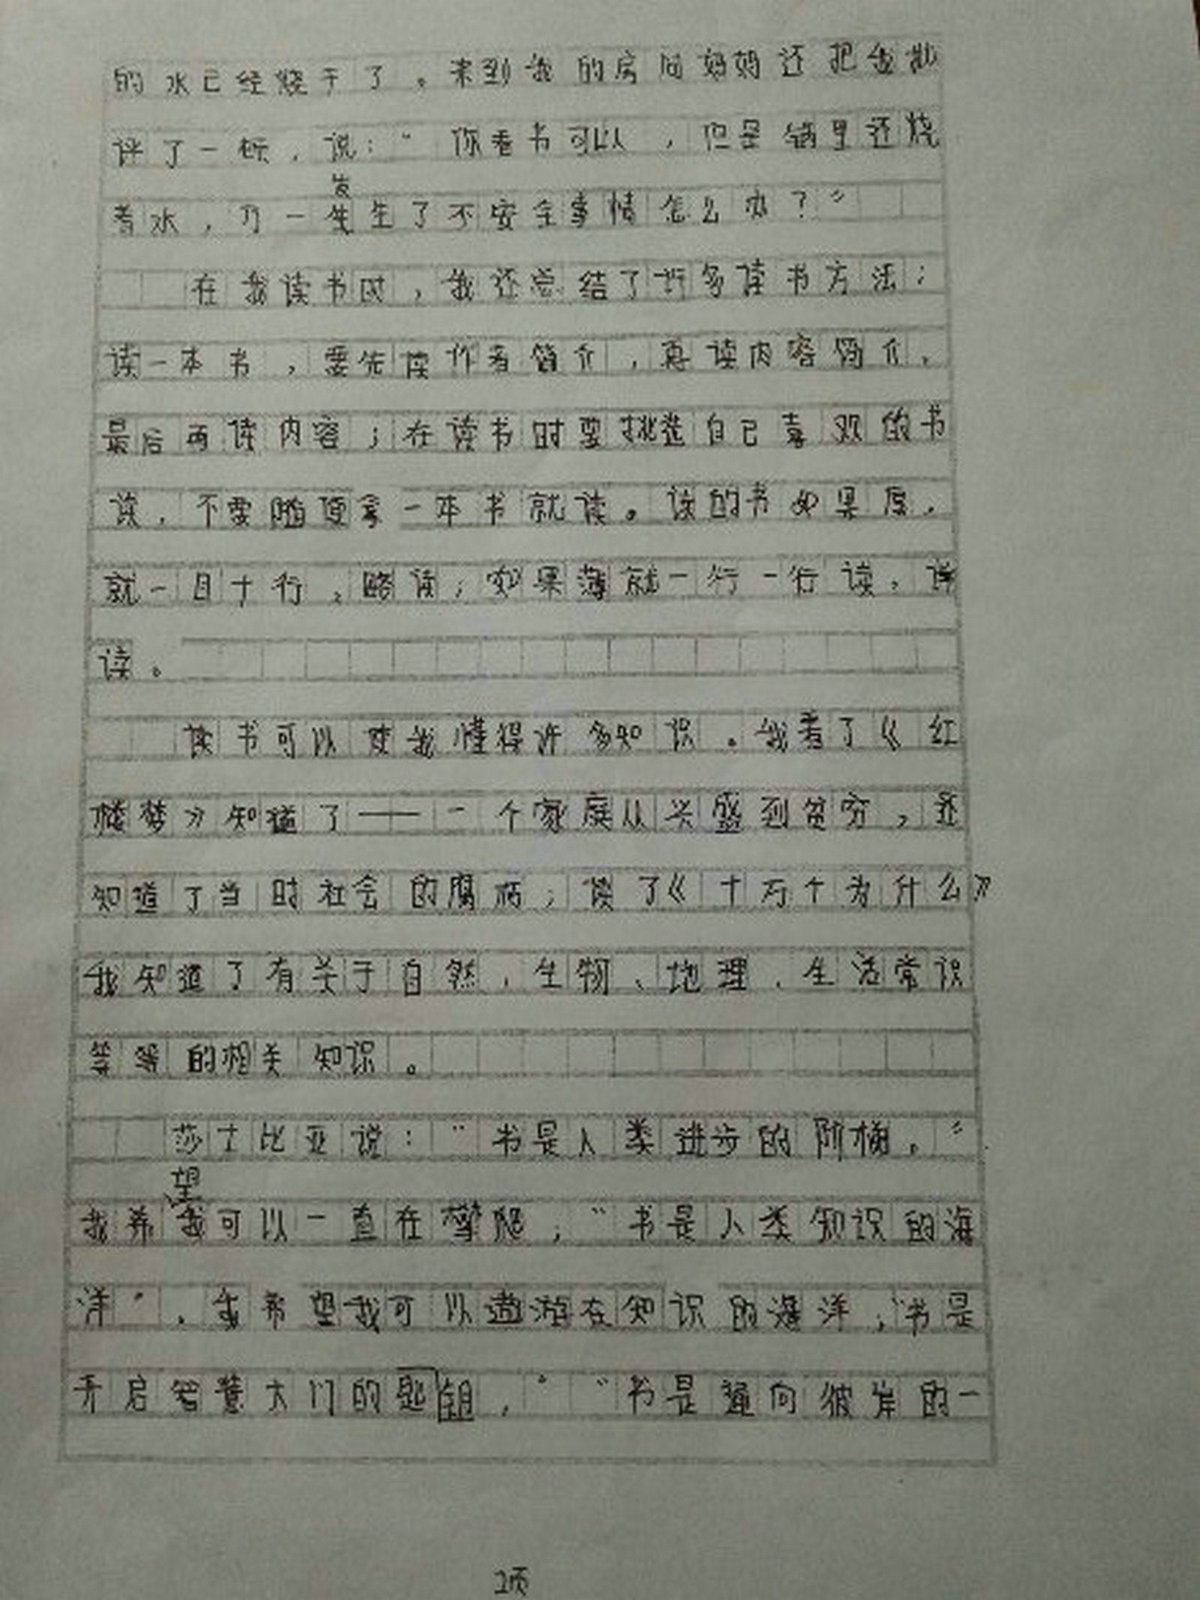 的水已经烧干了。来到我的房间妈妈还把我批
评了一顿，说：“你看书可以，但是锅里还烧
着水，万一发生了不安全事情怎么办？”
在我读书时，我还总结了许多读书方法：
读一本书，要先读作者简介，再读内容简介，
最后再读内容；在读书时要挑选自己喜欢的书
读，不要随便拿一本书就读。读的书如果厚，
就一目十行，略读；如果薄就一行一行读，详
读。
读书可以使我懂得许多知识。我看了《红
楼梦》知道了——一个家庭从兴盛到贫穷，还
知道了当时社会的腐朽；读了《十万个为什么》
我知道了有关于自然，生物、地理，生活常识
等等的相关知识。
莎士比亚说：“书是人类进步的阶梯。”
我希望我可以一直在攀爬；“书是人类知识的海
洋”，我希望我可以遨游在知识的海洋；“书是
开启智慧大门的匙钥，”“书是通向彼岸的一
2页